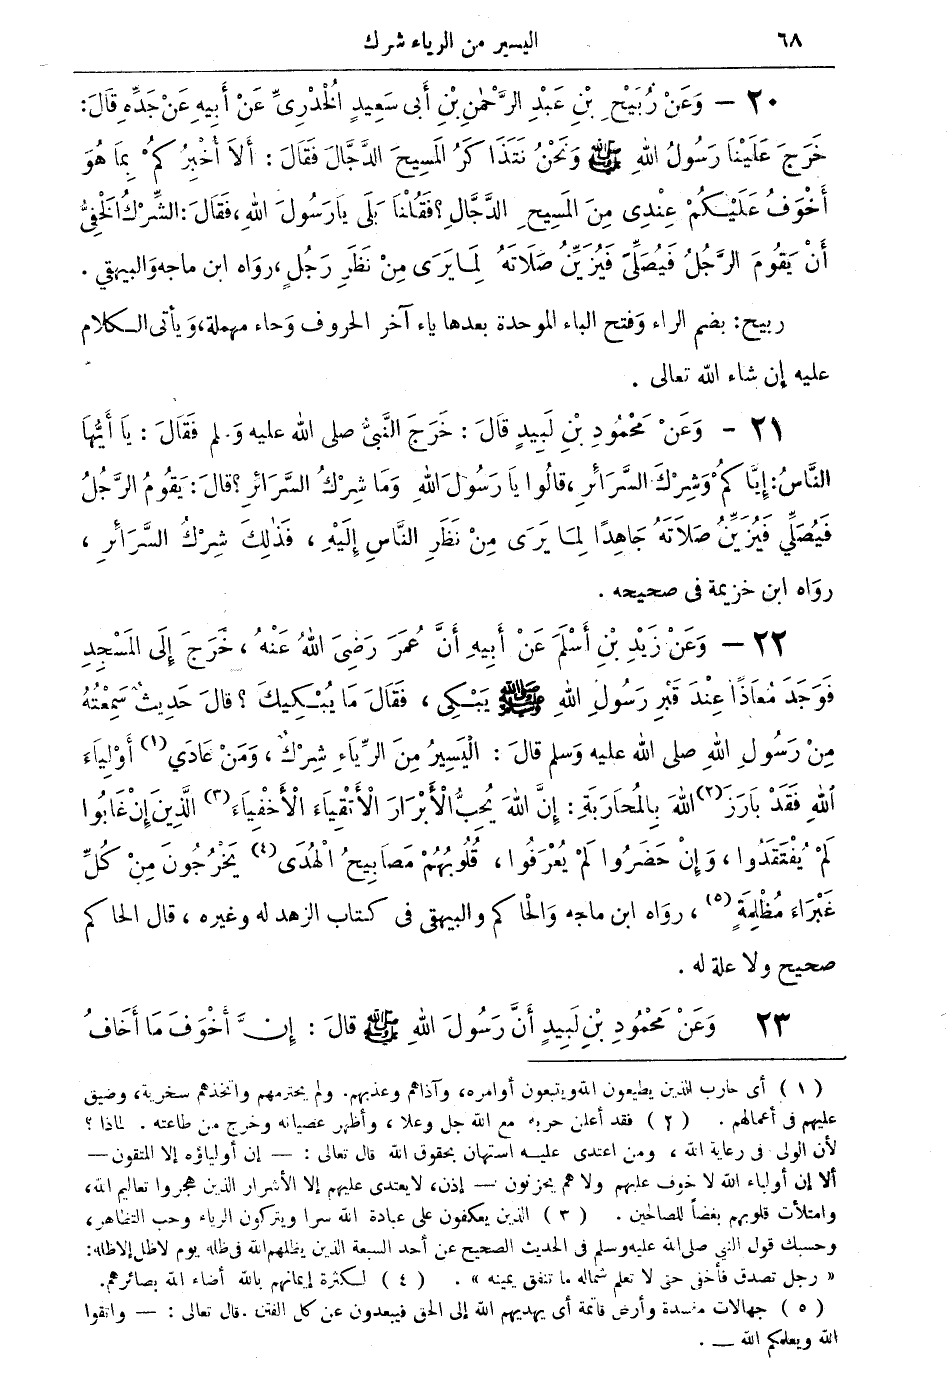 ٦٨ اليسير من الرياء شرك
٢٠ – وَعَنْ رُبَيْحِ بْنِ عَبْدِ الرَّحْمٰنِ بْنِ أَبِى سَعِيدٍ الْخُدْرِىِّ عَنْ أَبِيهِ عَنْ جَدِّهِ قَالَ:
خَرَجَ عَلَيْنَا رَسُولُ اللهِ ﷺ وَنَحْنُ نَتَذَاكَرُ الْمَسِيحَ الدَّجَّالَ فَقَالَ : أَلاَ أُخْبِرُكُمْ بِمَا هُوَ
أَخْوَفُ عَلَيْكُمْ عِنْدِى مِنَ الْمَسِيحِ الدَّجَّالِ؟ فَقُلْنَا بَلَى يَارَسُولَ اللهِ، فَقَالَ: الشِّرْكُ الْخَفِىُّ
أَنْ يَقُومَ الرَّجُلُ فَيُصَلِّىَ فَيُزَيِّنُ صَلَاتَهُ لِمَا يَرَى مِنْ نَظَرِ رَجُلٍ، رواه ابن ماجه والبيهقي .
ربيح: بضم الراء وفتح الباء الموحدة بعدها ياء آخر الحروف وحاء مهملة، ويأتى الكلام
عليه إن شاء الله تعالى .
٢١ - وَعَنْ مَحْمُودِ بْنِ لَبِيدٍ قَالَ : خَرَجَ النَّبِىُّ صلى الله عليه و لم فَقَالَ : يَا أَيُّهَا
النَّاسُ: إِيَّاكُمْ وَشِرْكَ السَّرَائِرِ، قَالُوا يَا رَسُولَ اللهِ وَمَا شِرْكُ السَّرَائِرِ؟ قالَ: يَقُومُ الرَّجُلُ
فَيُصَلِّي فَيُزَيِّنُ صَلَاتَهُ جَاهِدًا لِمَا يَرَى مِنْ نَظَرِ النَّاسِ إِلَيْهِ ، فَذٰلِكَ شِرْكُ السَّرَائِرِ ،
رواه ابن خزيمة فى صحيحه .
٢٢ – وَعَنْ زَيْدِ بْنِ أَسْلَمَ عَنْ أَبِيهِ أَنَّ عُمَرَ رَضِىَ اللهُ عَنْهُ ، خَرَجَ إِلَى الْمَسْجِدِ
فَوَجَدَ مُعَاذًا عِنْدَ قَبْرِ رَسُولِ اللهِ ﷺ يَبْكِى ، فَقَالَ مَا يُبْكِيكَ ؟ قَالَ حَدِيثٌ سَمِعْتُهُ
مِنْ رَسُولِ اللهِ صلى الله عليه وسلم قالَ : الْيَسِيرُ مِنَ الرِّيَاءِ شِرْكٌ ، وَمَنْ عَادَي (١) أَوْلِيَاءَ
اللهِ فَقَدْ بَارَزَ (٢) اللهَ بِالْمُحَارَبَةِ : إِنَّ اللهَ يُحِبُّ الْأَبْرَارَ الْأَتْقِيَاءَ الْأَخْفِيَاءَ (٣) الَّذِينَ إِنْ غَابُوا
لَمْ يُفْتَقَدُوا ، وَإِنْ حَضَرُوا لَمْ يُعْرَفُوا ، قُلُوبُهُمْ مَصَابِيحُ الْهُدَى (٤) يَخْرُجُونَ مِنْ كُلِّ
غَبْرَاءَ مُظْلِمَةٍ (٥) ، رواه ابن ماجه والحاكم والبيهقى فى كتاب الزهد له وغيره ، قال الحاكم
صحيح ولا علة له .
٢٣ وَعَنْ مَحْمُودِ بْنِ لَبِيدٍ أَنَّ رَسُولَ اللهِ ﷺ قالَ : إِنَّ أَخْوَفَ مَا أَخَافُ
( ١ ) أى حارب الذين يطيعون الله ويتبعون أوامره، وآذاهم وعذبهم. ولم يحترمهم واتخذهم سخرية، وضيق
عليهم فى أعمالهم . ( ٢ ) فقد أعلن حربه مع الله جل وعلا ، وأظهر عصيانه وخرج من طاعته . لماذا ؟
لأن الولى فى رعاية الله ، ومن اعتدى عليه استهان بحقوق الله قال تعالى : — إن أولياؤه إلا المتقون —
ألا إن أولياء الله لا خوف عليهم ولا هم يحزنون — إذن، لايعتدى عليهم إلا الأشرار الذين هجروا تعاليم الله،
وامتلأت قلوبهم بغضاً للصالحين . ( ٣ ) الذين يعكفون على عبادة الله سرا ويتركون الرياء وحب التظاهر،
وحسبك قول النبي صلى الله عليه وسلم فى الحديث الصحيح عن أحد السبعة الذين يظلهم الله فى ظله يوم لا ظل إلا ظله:
« رجل تصدق فأخفى حتى لا تعلم شماله ما تنفق يمينه » . ( ٤ ) لكثرة إيمانهم بالله أضاء الله بصائرهم.
( ٥ ) جهالات مفسدة وأرض قاتمة أى يهديهم الله إلى الحق فيبعدون عن كل الفتن .قال تعالى : — واتقوا
الله ويعلمكم الله — .